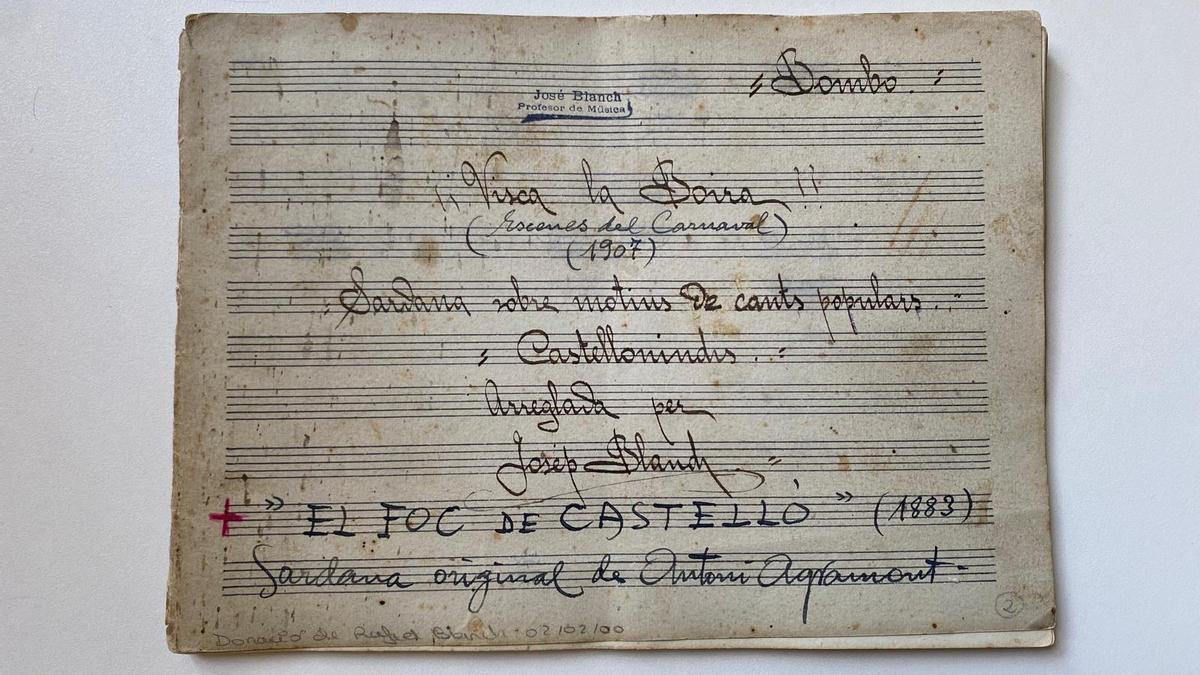 〃 Bombo. 〃
José Blanch
Profesor de Música
¡¡ Visca la Boira !!
(Escenes del Carnaval)
(1907)
Sardana sobre motius de cants populars..
〃 Castellonindis. 〃
Arreglada per
Josép Blanch 〃
+ " EL FOC DE CASTELLÓ " (1883)
Sardana original de Antoni Agramont -
2
Donació de Rafel Blanch - 02/02/00